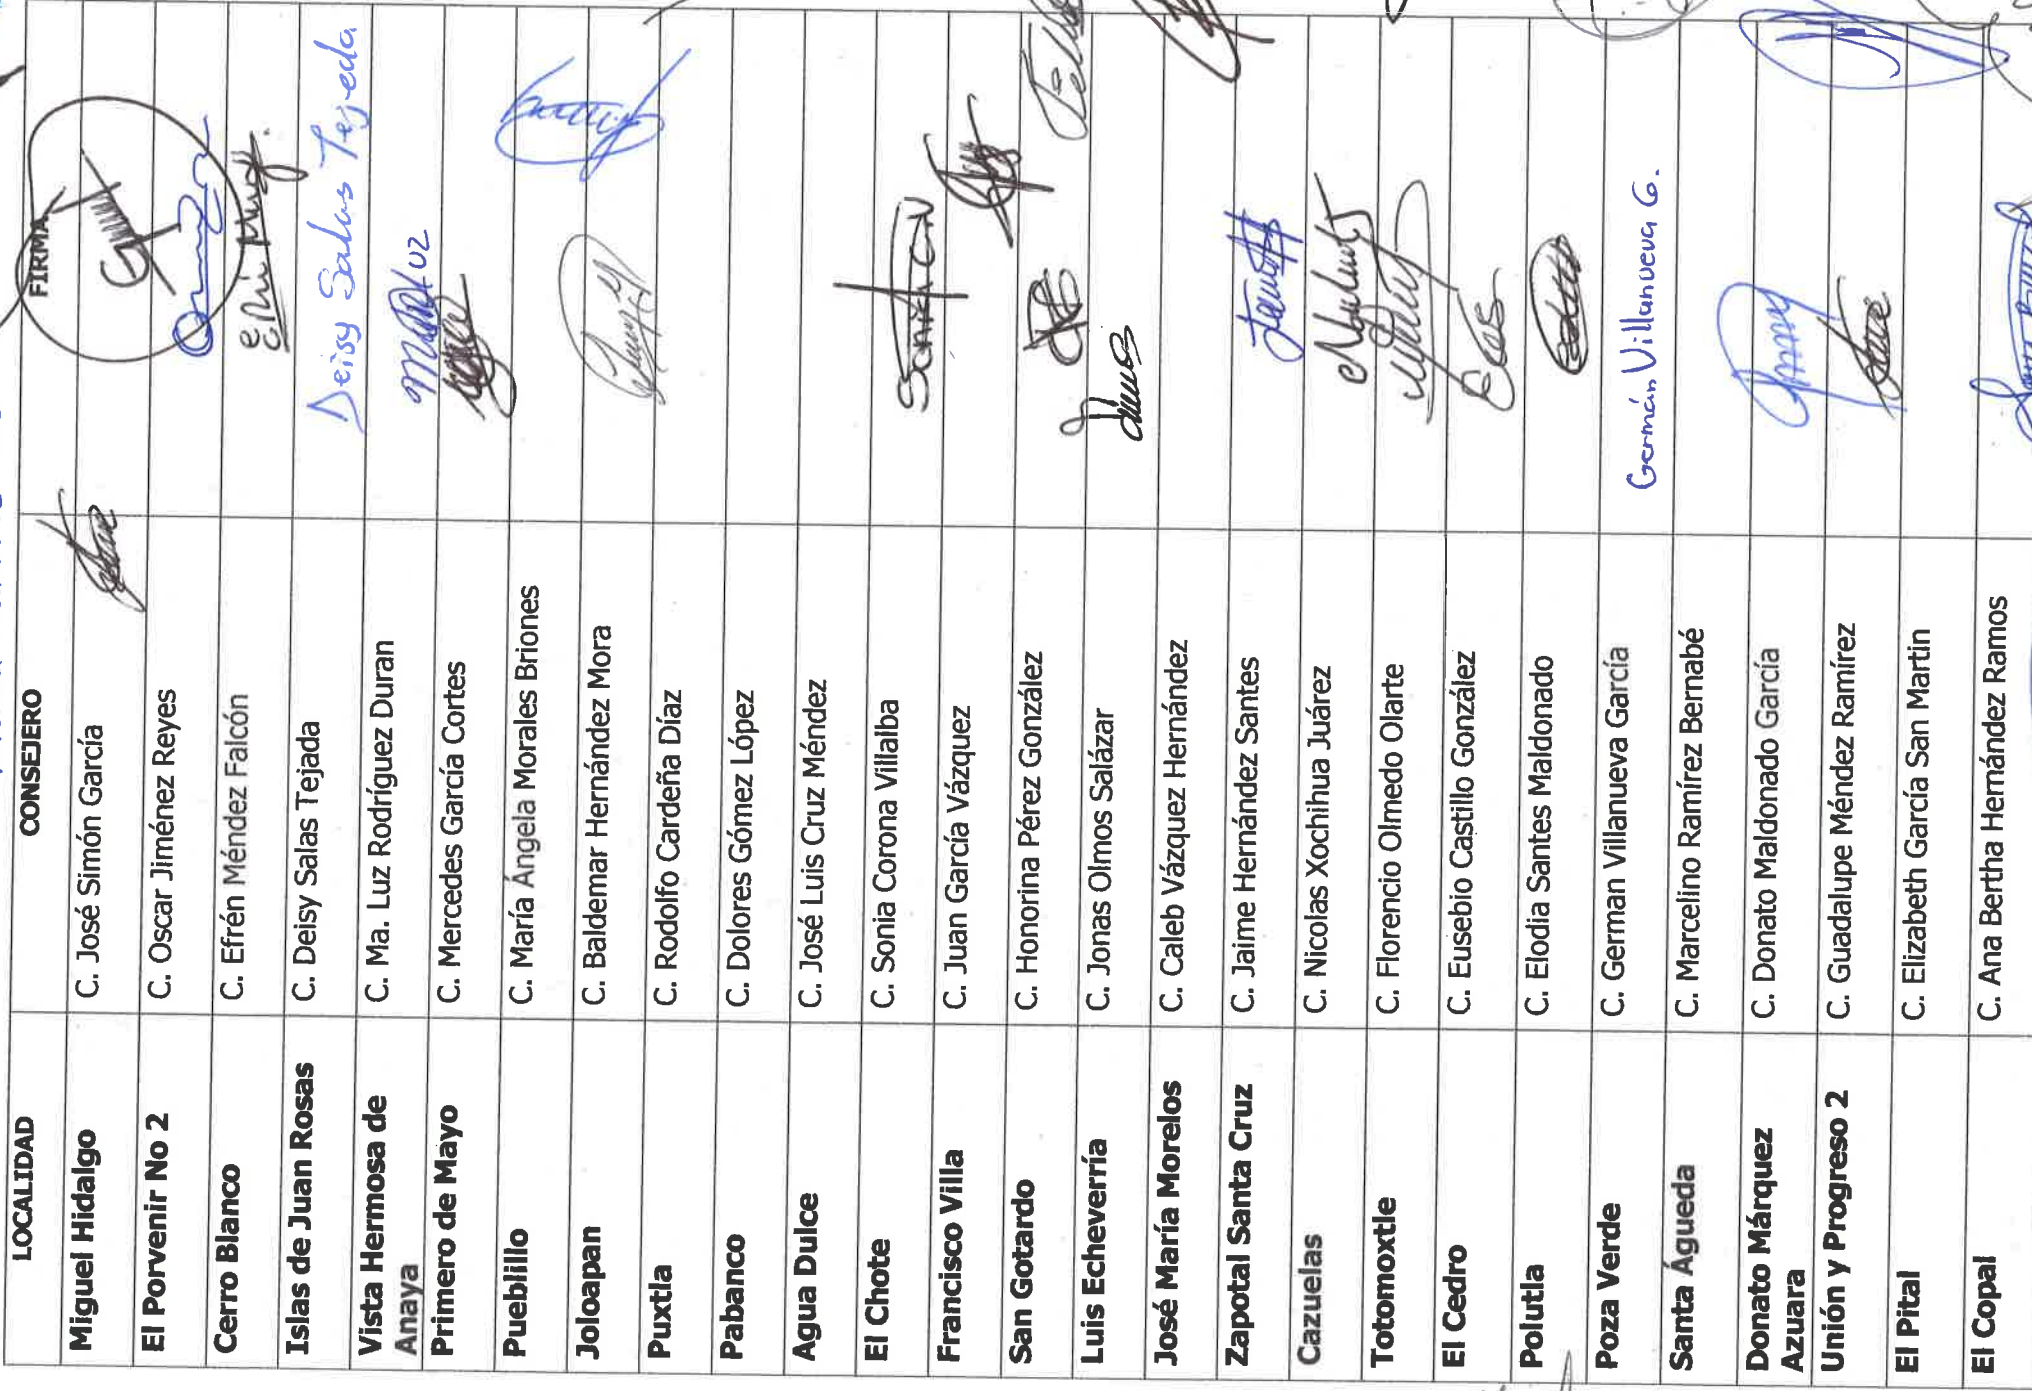 LOCALIDAD CONSEJERO FIRMA
Miguel Hidalgo C. José Simón García
El Porvenir No 2 C. Oscar Jiménez Reyes
Cerro Blanco C. Efrén Méndez Falcón
Islas de Juan Rosas C. Deisy Salas Tejada Deisy Salas Tejeda
Vista Hermosa de C. Ma. Luz Rodríguez Duran
Anaya
Primero de Mayo C. Mercedes García Cortes
Pueblillo C. María Ángela Morales Briones
Joloapan C. Baldemar Hernández Mora
Puxtla C. Rodolfo Cardeña Díaz
Pabanco C. Dolores Gómez López
Agua Dulce C. José Luis Cruz Méndez
El Chote C. Sonia Corona Villalba
Francisco Villa C. Juan García Vázquez
San Gotardo C. Honorina Pérez González
Luis Echeverría C. Jonas Olmos Salázar
José María Morelos C. Caleb Vázquez Hernández
Zapotal Santa Cruz C. Jaime Hernández Santes
Cazuelas C. Nicolas Xochihua Juárez
Totomoxtle C. Florencio Olmedo Olarte
El Cedro C. Eusebio Castillo González
Polutla C. Elodia Santes Maldonado
Poza Verde C. German Villanueva García Germán Villanueva G.
Santa Águeda C. Marcelino Ramírez Bernabé
Donato Márquez C. Donato Maldonado García
Azuara
Unión y Progreso 2 C. Guadalupe Méndez Ramírez
El Pital C. Elizabeth García San Martin
El Copal C. Ana Bertha Hernández Ramos